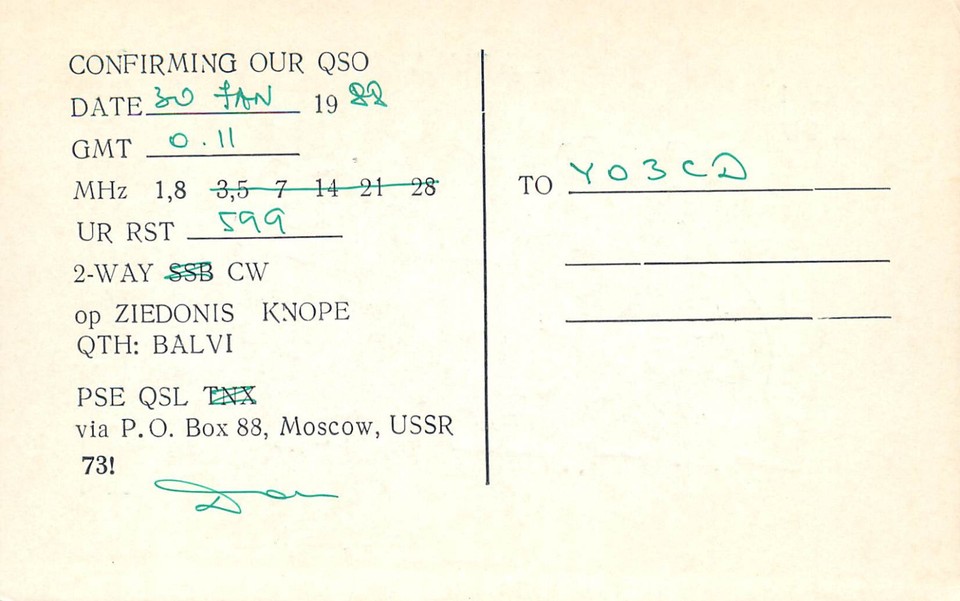 CONFIRMING OUR QSO
DATE 30 JAN 1988
GMT 0.11
MHz 1,8 3,5 7 14 21 28
UR RST 599
2-WAY SSB CW
op ZIEDONIS KNOPE
QTH: BALVI
PSE QSL TNX
via P.O. Box 88, Moscow, USSR
73!
TO YO3CD